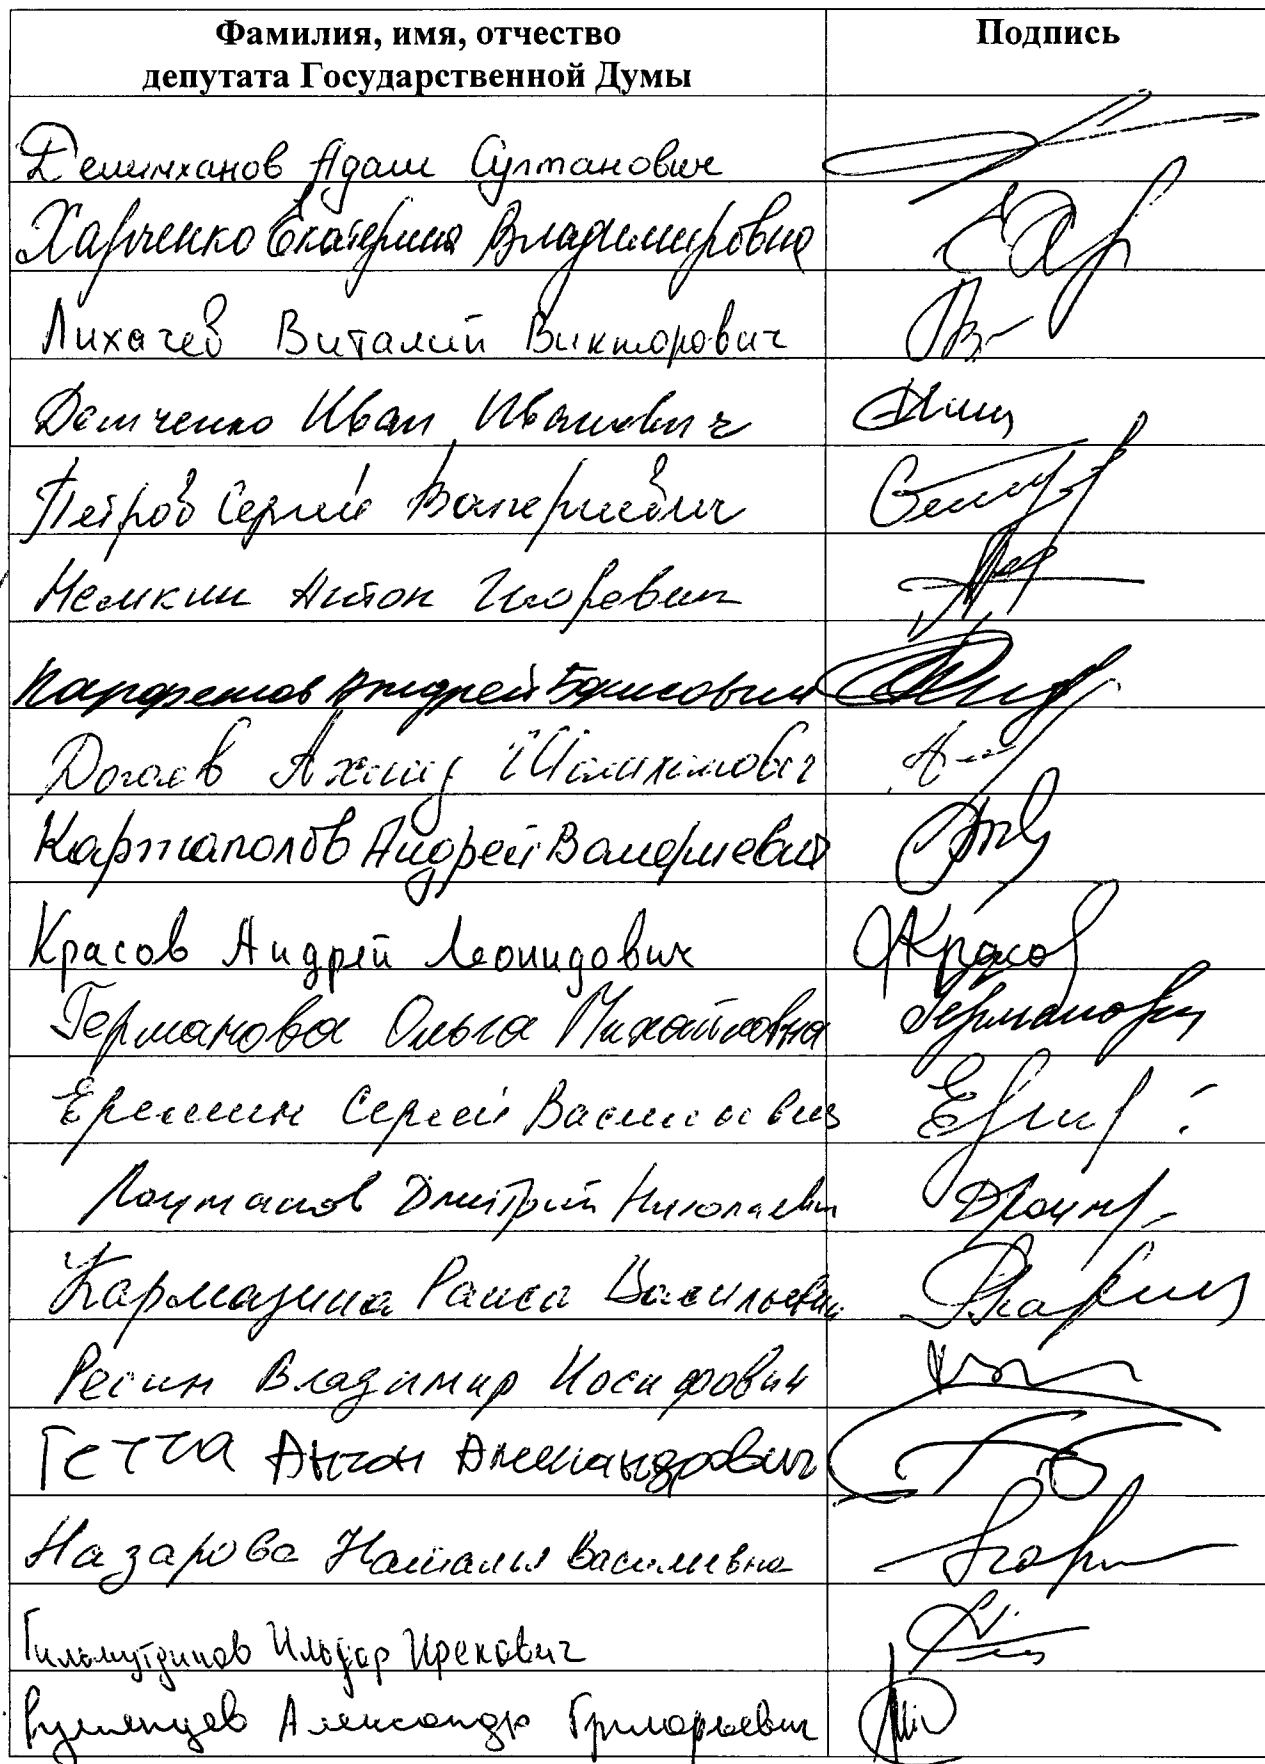 Фамилия, имя, отчество Подпись
депутата Государственной Думы
Делимханов Адам Султанович
Харченко Екатерина Владимировна
Лихачев Виталий Викторович
Демченко Иван Иванович
Петров Сергей Валериевич
Немкин Антон Игоревич
Парфенов Андрей Борисович
Догаев Ахмед Шамханович
Картаполов Андрей Валериевич
Красов Андрей Леонидович Красов
Германова Ольга Михайловна Германова
Еремин Сергей Васильевич
Лоцманов Дмитрий Николаевич
Кармазина Раиса Васильевна
Ресин Владимир Иосифович
Гетта Антон Александрович
Назарова Наталья Васильевна
Гильмутдинов Ильдар Ирекович
Румянцев Александр Григорьевич